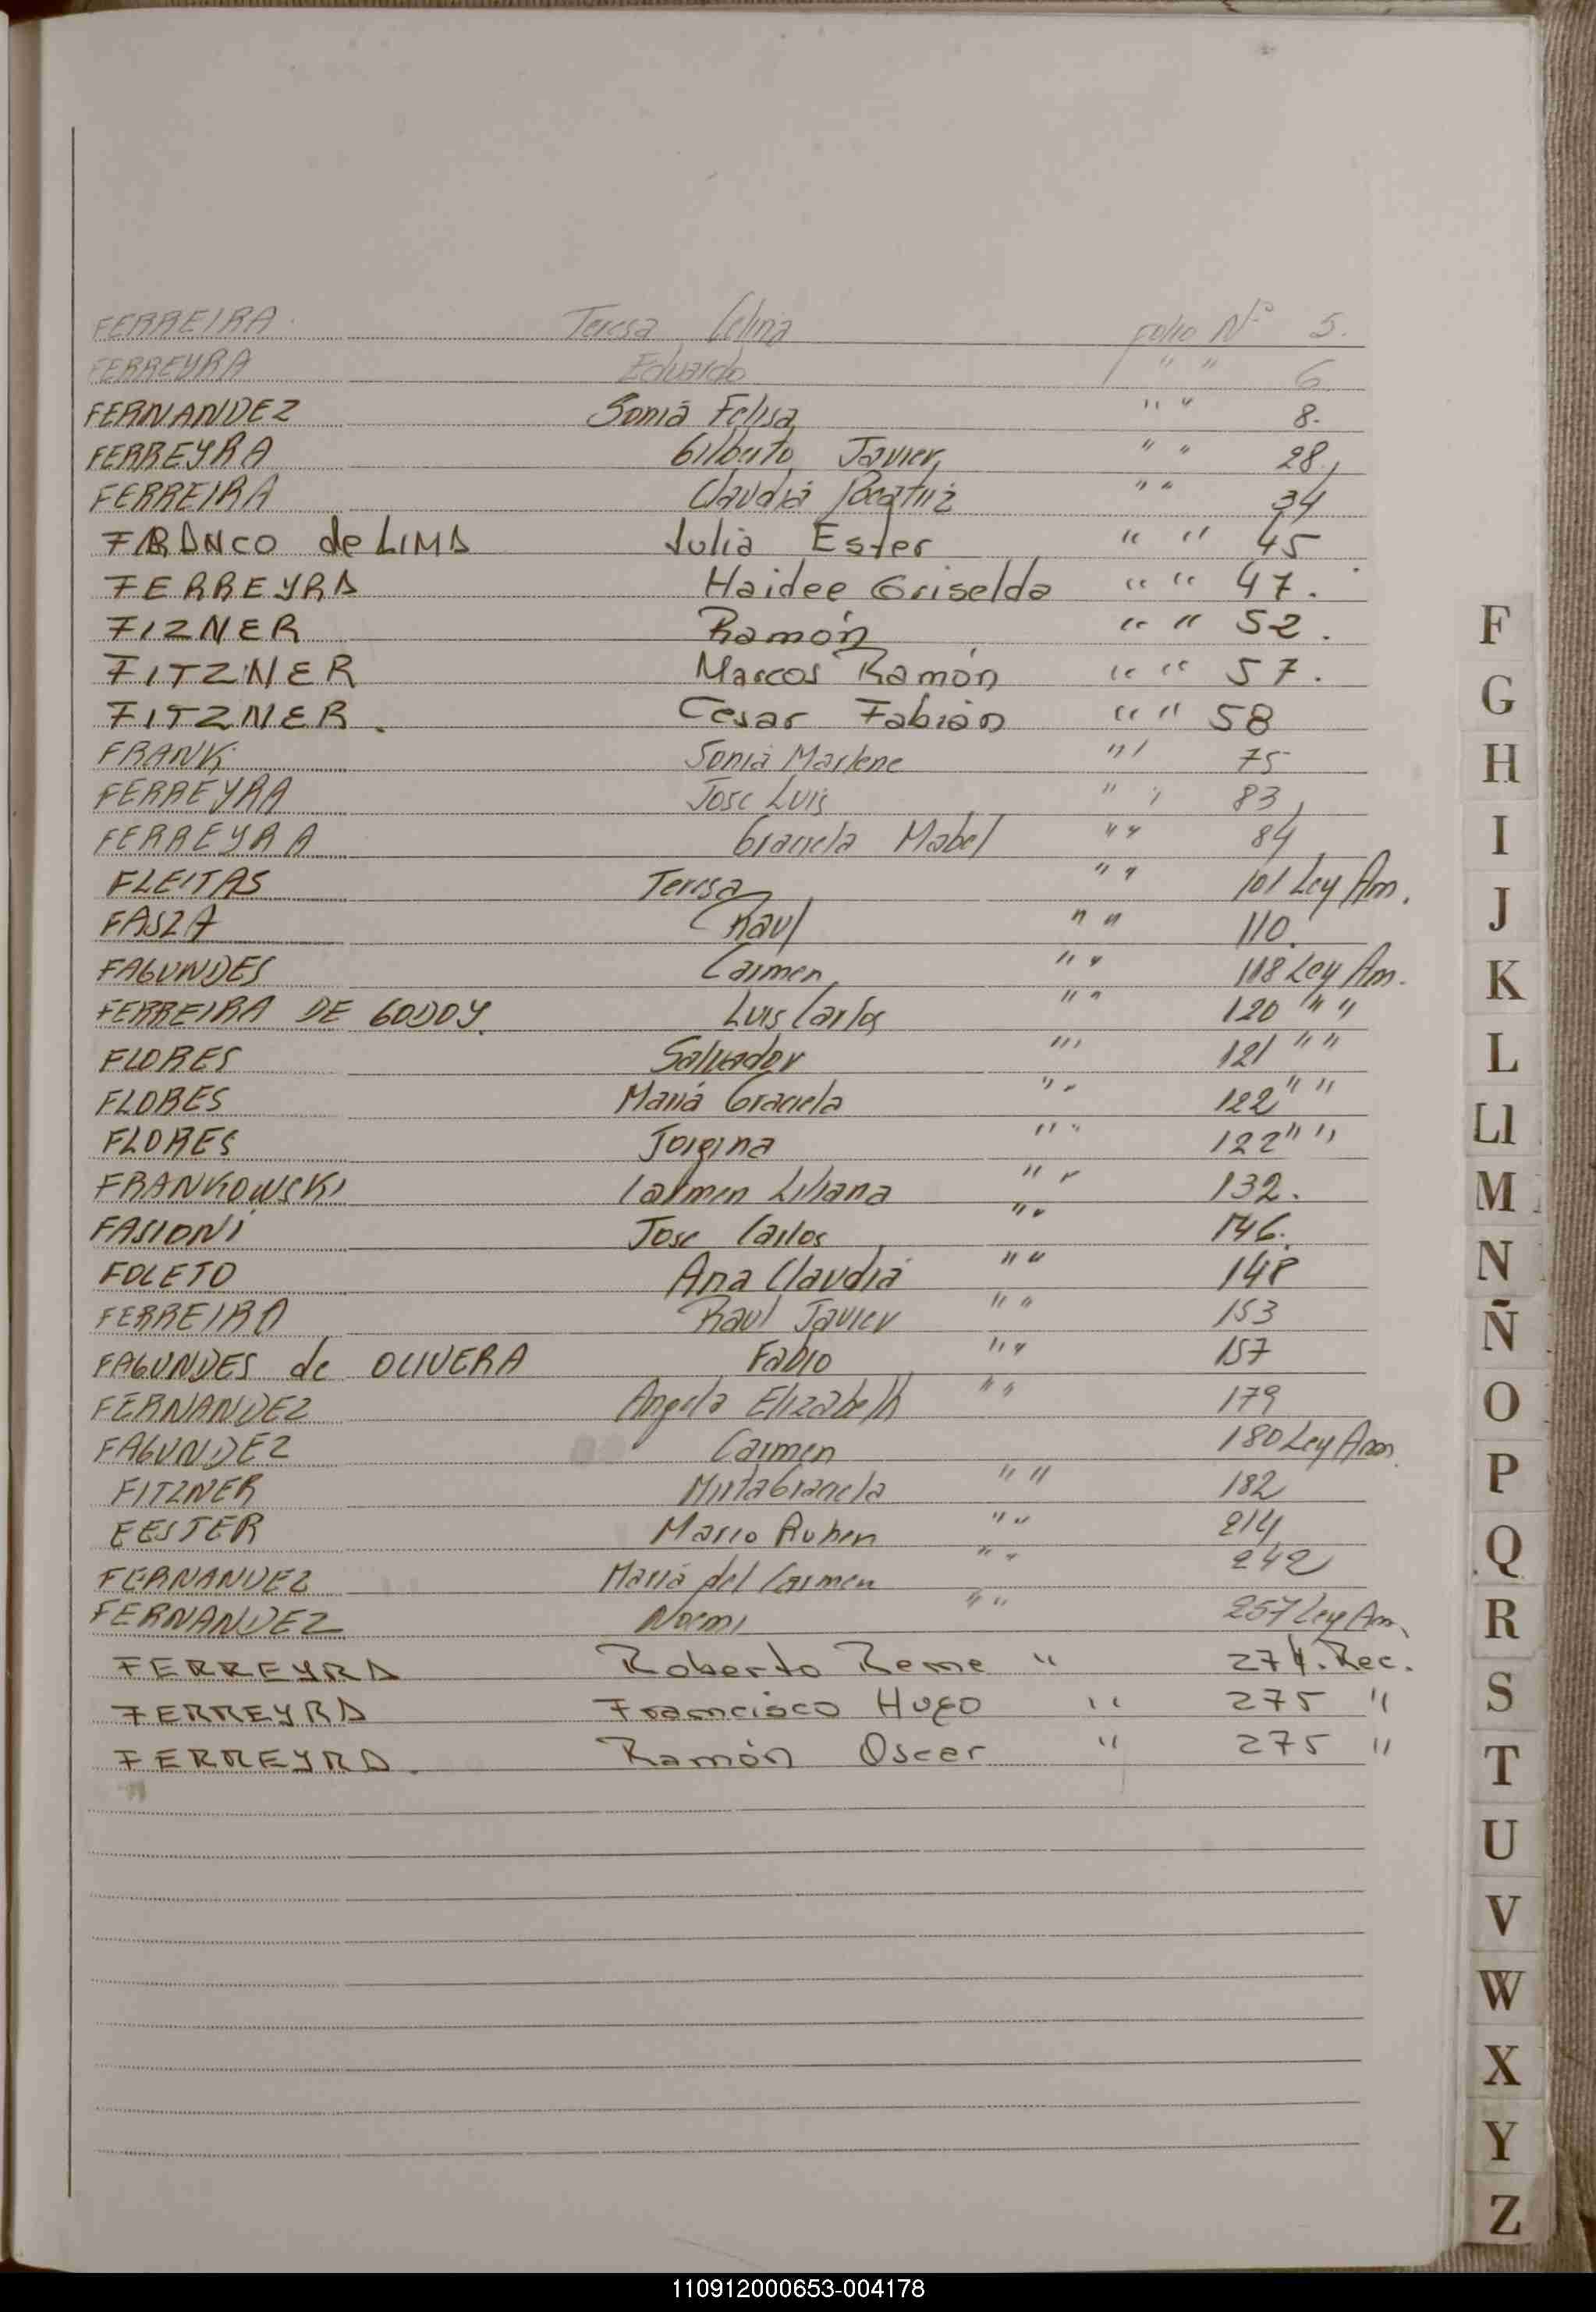 FERREIRA Teresa Celina Folio Nº 5.
FERREYRA Eduardo " " 6
FERNANDEZ Sonia Felisa " " 8.
FERREYRA Gilberto Javier, " " 28,
FERREIRA Claudia Beatriz " " 34
FRANCO de LIMA Julia Ester " " 45
FERREYRA Haidee Griselda " " 47.
FIZNER Ramón " " 52.
FITZNER Marcos Ramón " " 57.
FITZNER. Cesar Fabián " " 58
FRANK Sonia Marlene " " 75
FERREYRA Jose Luis " " 83,
FERREYRA Graciela Mabel " " 84
FLEITAS Teresa " " 101 Ley Am.
FASZA Raul " " 110.
FAGUNDES Carmen " " 118 Ley Am.
FERREIRA DE GODOY. Luis Carlos " " 120 " "
FLORES Salvador " " 121 " "
FLORES Maria Graciela " " 122 " "
FLORES Jorgina " " 122 " "
FRANKOWSKI Carmen Liliana " " 132.
FASIONI Jose Carlos " " 146.
FOLETO Ana Claudia " " 148
FERREIRA Raul Javier " " 153
FAGUNDES de OLIVERA Fabio " " 157
FERNANDEZ Angela Elizabeth " " 179
FAGUNDEZ Carmen 180 Ley Am
FITZNER Mirta Graciela " " 182
FESTER Mario Ruben " " 214
FERNANDEZ Maria del Carmen " " 242
FERNANDEZ Noemi " " 257 Ley Am,
FERREYRA Roberto Rene " 274. Rec.
FERREYRA Francisco Hugo " 275 "
FERREYRA. Ramón Oscar " 275 "
F
G
H
I
J
K
L
Ll
M
N
Ñ
O
P
Q
R
S
T
U
V
W
X
Y
Z
110912000653-004178